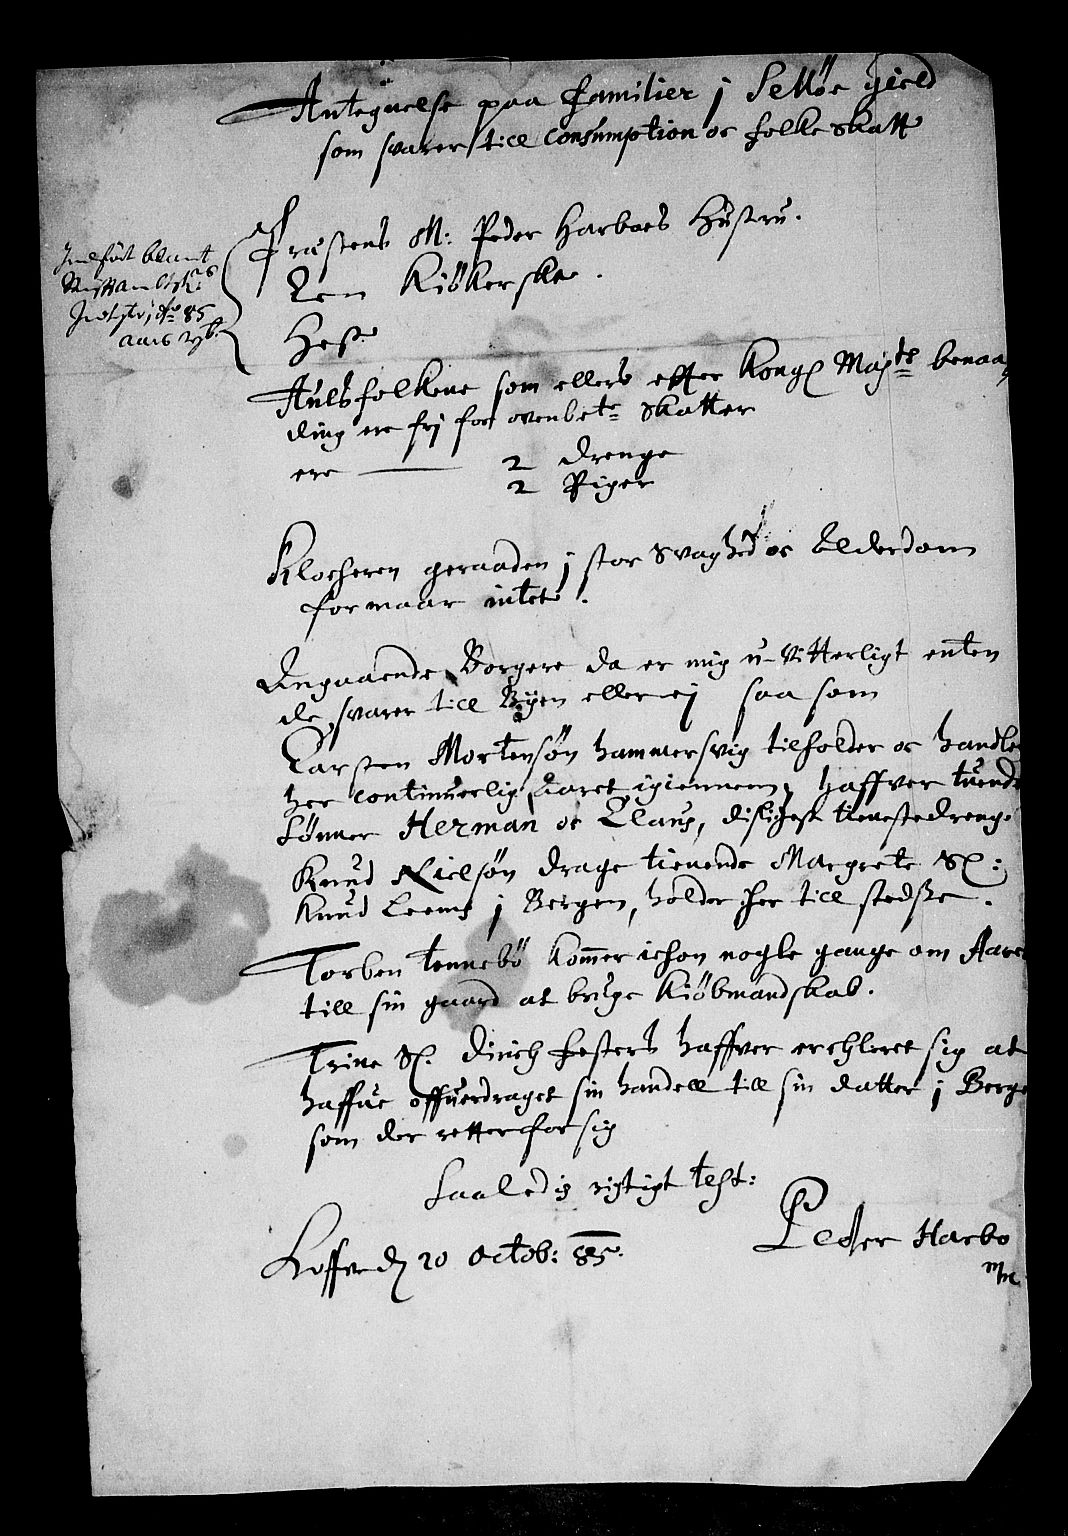 Antegnelse paa familier j Selløe gield
som svarer till Consumption oc folke skatt
Præstens M: Peder Harboes Hüstru.
Een Kiökerske.
Hest
Indfört blant
aars
Aulsfolkene som ellers effter Kongl Mayts benaa
ding ere frj for ovenbete skatter
ere 2 drenge
2 Piger
Klocheren geraaden j stor svaghed oc Alderdom
formaar intet.
Angaaende Borgere da er mig u-vitterligt enten
de svarer till Byen eller ej saa som
Carsten Mortensøn hammersvig tilholder oc handle
her continuerlig Aaret igiennem, haffver tuende
Sønner Herman oc Claus, disligest tienestedreng
Knud Nielsøn drage tienende Margrete Sl:
Knud Leems j Bergen, holder her till stedsse.
Torben tennebö kommer ichon nogle gange om Aaret
till sin gaard at bruge Kiöbmandskab.
Trine Sl. Dirich festers haffver erchleret sig at
haffue offuerdraget sin handell till sin datter j Berge
som der retter for sig
Saaledis rigtigt test:
d 20 Octob: 85.
Peder Harbo
mpe